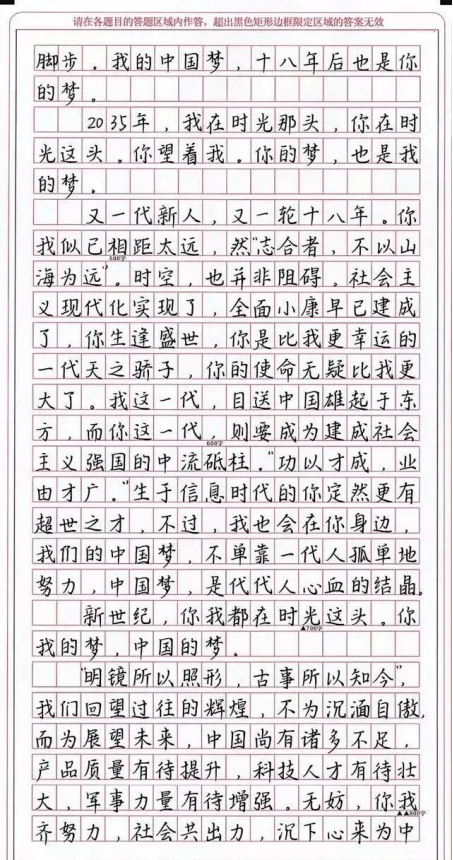 请在各题目的答题区域内作答，超出黑色矩形边框限定区域的答案无效
脚步。我的中国梦，十八年后也是你
的梦。
2035年，我在时光那头，你在时
光这头。你望着我。你的梦，也是我
的梦。
又一代新人，又一轮十八年。你
我似已相距太远，然“志合者，不以山
▲500字
海为远”。时空，也并非阻碍。社会主
义现代化实现了，全面小康早已建成
了，你生逢盛世，你是比我更幸运的
一代天之骄子，你的使命无疑比我更
大了。我这一代，目送中国雄起于东
方，而你这一代，则要成为建成社会
▲600字
主义强国的中流砥柱。“功以才成，业
由才广。”生于信息时代的你定然更有
超世之才，不过，我也会在你身边，
我们的中国梦，不单靠一代人孤单地
努力，中国梦，是代代人心血的结晶。
新世纪，你我都在时光这头。你
▲700字
我的梦，中国的梦。
“明镜所以照形，古事所以知今”，
我们回望过往的辉煌，不为沉湎自傲，
而为展望未来，中国尚有诸多不足，
产品质量有待提升，科技人才有待壮
大，军事力量有待增强。无妨，你我
▲▲800字
齐努力，社会共出力，沉下心来为中